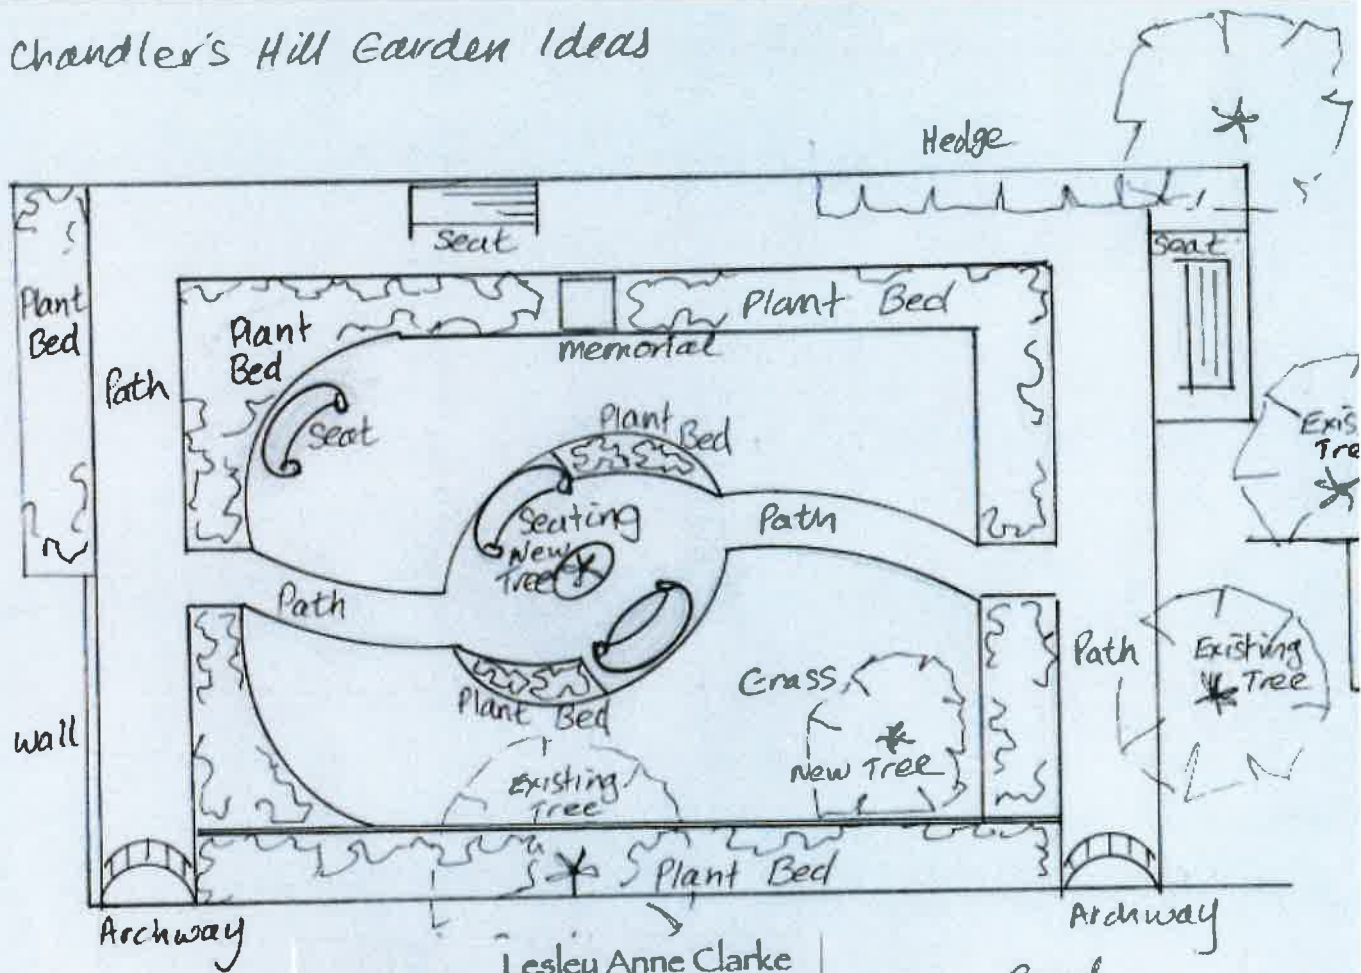 Chandler's Hill Garden Ideas
Hedge
Seat
Seat
Plant
Bed
Plant
Bed
Plant Bed
memorial
Path
Seat
Plant
Bed
Exis
Tre
Seating
New
Tree
Path
Path
Path
Existing
Tree
Grass
Plant Bed
New Tree
wall
Existing
Tree
Plant Bed
Archway
Archway
Lesley Anne Clarke